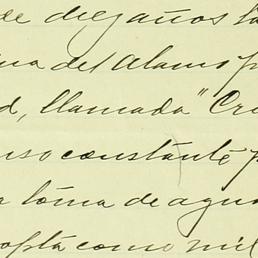 de diez años la
na del Alamo p
d, llamada "Cr
uso constante p
a toma de agua
osta como mil